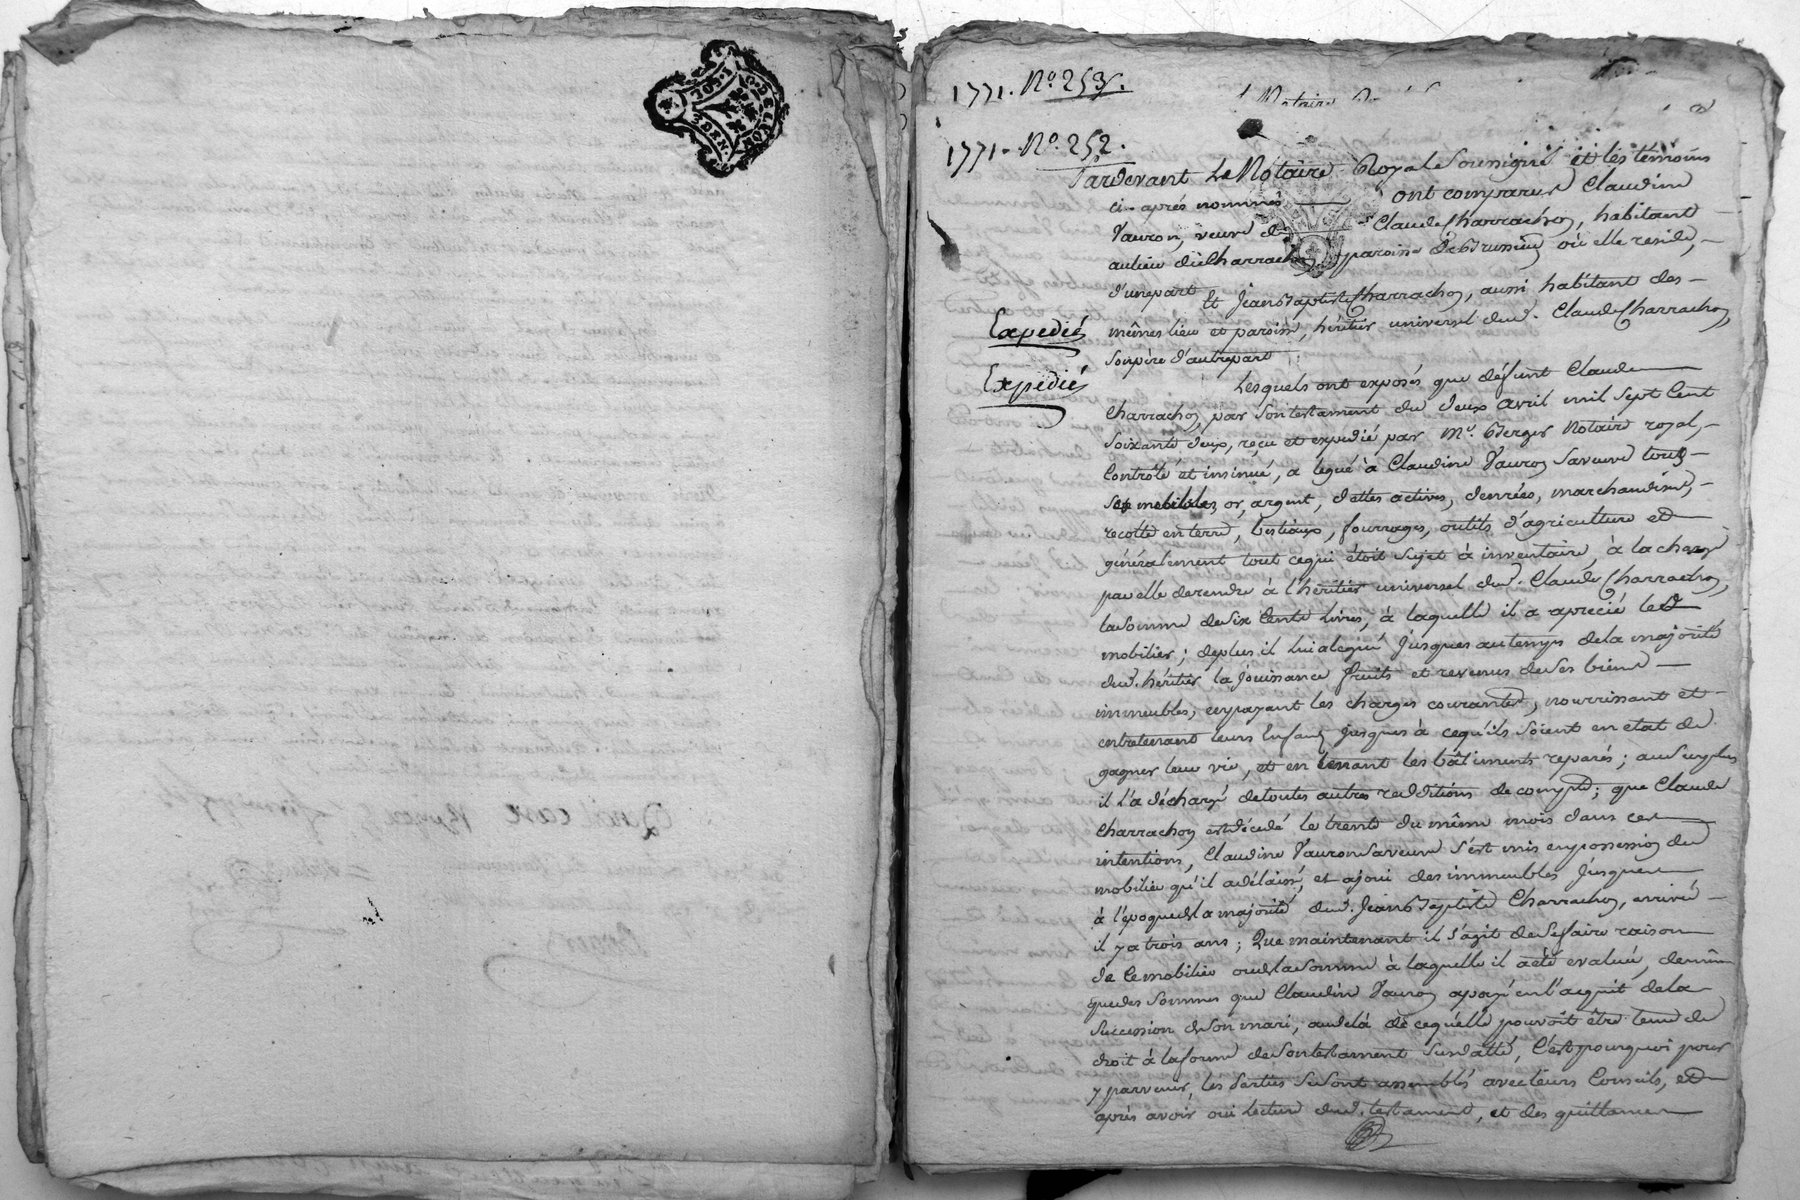 1771. No. 253.
1771. No. 252.
Pardevant Le Notaire Royal Soussigné et les témoins
ci-après nommés ont comparus Claudine
Vauron, veuve de Claude Charrachon, habitant
au lieu de Charrachon paroisse de où elle reside,
d'unepart Et Jean Baptiste Charrachon, aussi habitant des
mêmes lieu et paroisse, héritier universel dud. Claude Charrachon,
Son père d'autrepart
Expedié
Expedié
Lesquels ont exposés que défunt Claude
Charrachon, par son testament du deux avril mil sept Cent
Soixante deux, reçu et expedié par Me. Berger Notaire royal,
Contrôlé et insinué, a legué à Claudine Vauron Sa veuve touts
Ses mobiliers, or, argent, dettes actives, denrées, marchandise,
recolte en terre, bestiaux, fourrages, outils d'agriculture et
généralement tout cequi étoit Sujet à inventaire, à la charge
par elle de rendre à l'héritier universel dud. Claude Charrachon,
la Somme de Six Cents livres, à laquelle il a aprecié led
mobilier; deplus il lui a legué jusques au temps de la majorité
dud. héritier la jouissance fruits et revenus de Ses biens
immeubles, en payant les charges courantes, nourrissant et
entretenant leurs Enfans jusques à cequ'ils Soient en état de
gagner leur vie, et en tenant les bâtiments reparés; au Surplus
il l'a déchargé de toutes autres redditions de compte; que Claude
Charrachon est décédé le trente du même mois dans ces
intentions, Claudine Vauron Sa veuve S'est mis en possession du
mobilier qu'il a délaissé, et a joui des immeubles jusques
à l'époque de la majorité dud. Jean Baptiste Charrachon, arrivée
il y a trois ans; Que maintenant il S'agit de Se faire raison
de Ce mobilier ou de la Somme à laquelle il a été evalué, de même
que des Sommes que Claudine Vauron a payé en l'acquit de la
Succession de Son mari, au delà de cequ'elle pouvoit être tenue de
droit à la forme de Son testament Susdatté, C'est pourquoi pour
y parvenir, les Parties Se Sont assemblés avec leurs Conseils, et
après avoir oui Lecture dud. testament, et des quittances